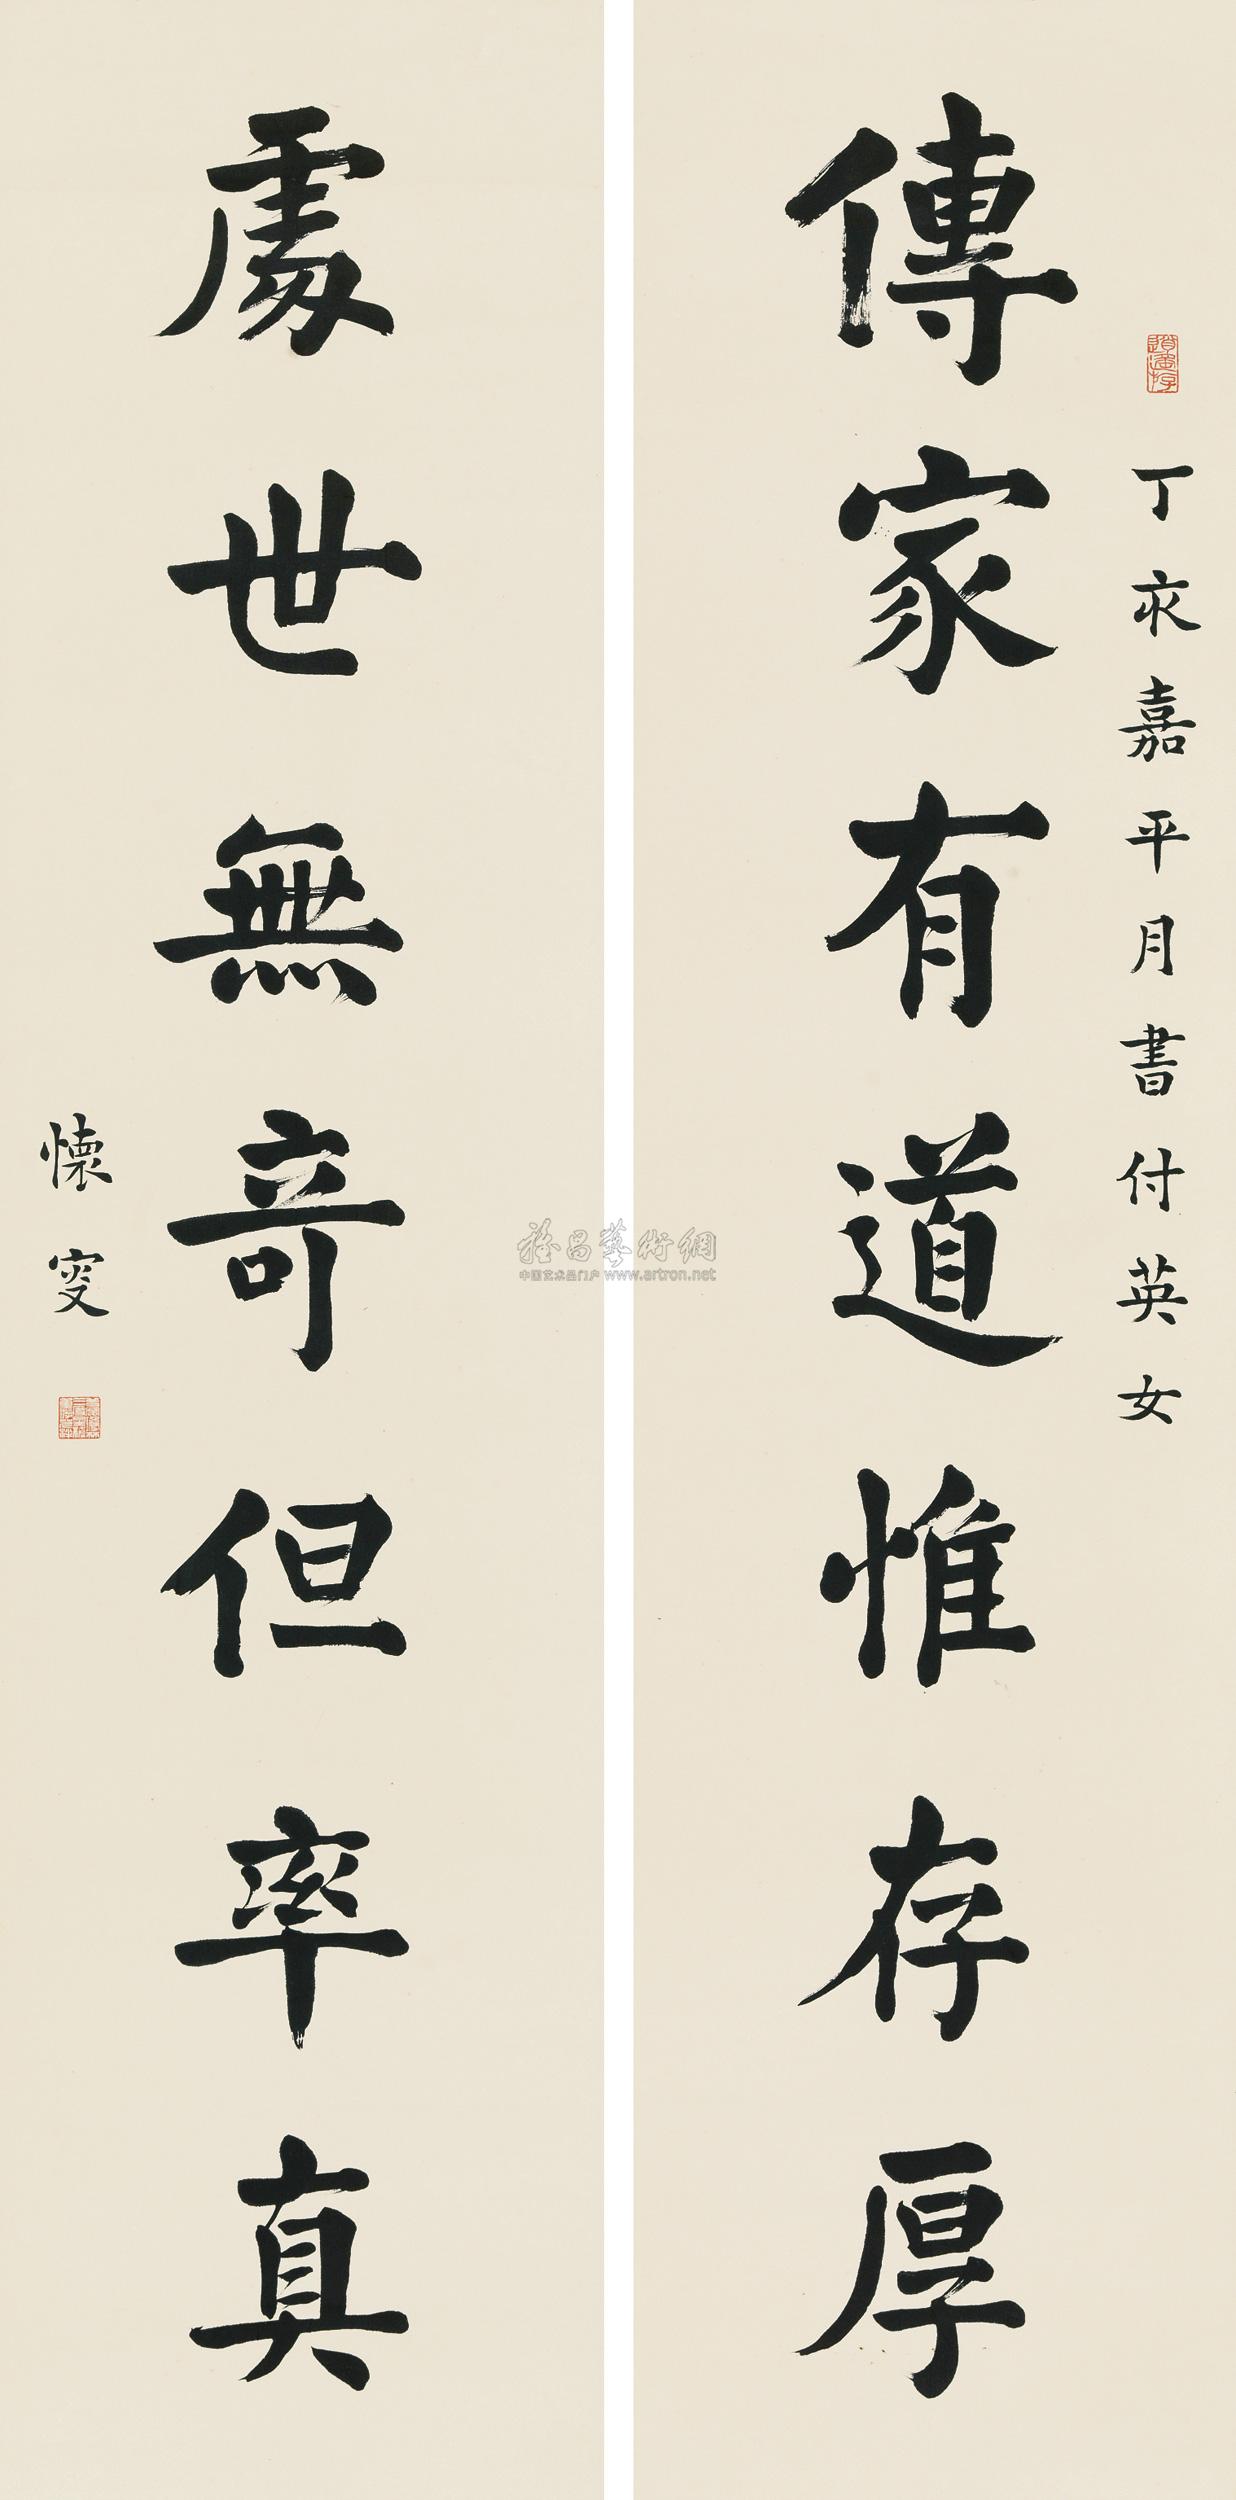 丁亥嘉平月書付英女
傳家有道惟存厚
處世無奇但率真
懷叟
雅昌藝術網
中国艺术品门户 www.artron.net